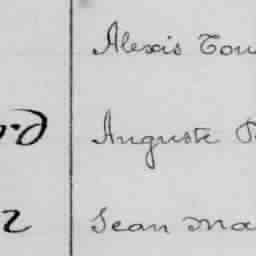 Alexis Tou
rd Auguste
2 Jean Ma